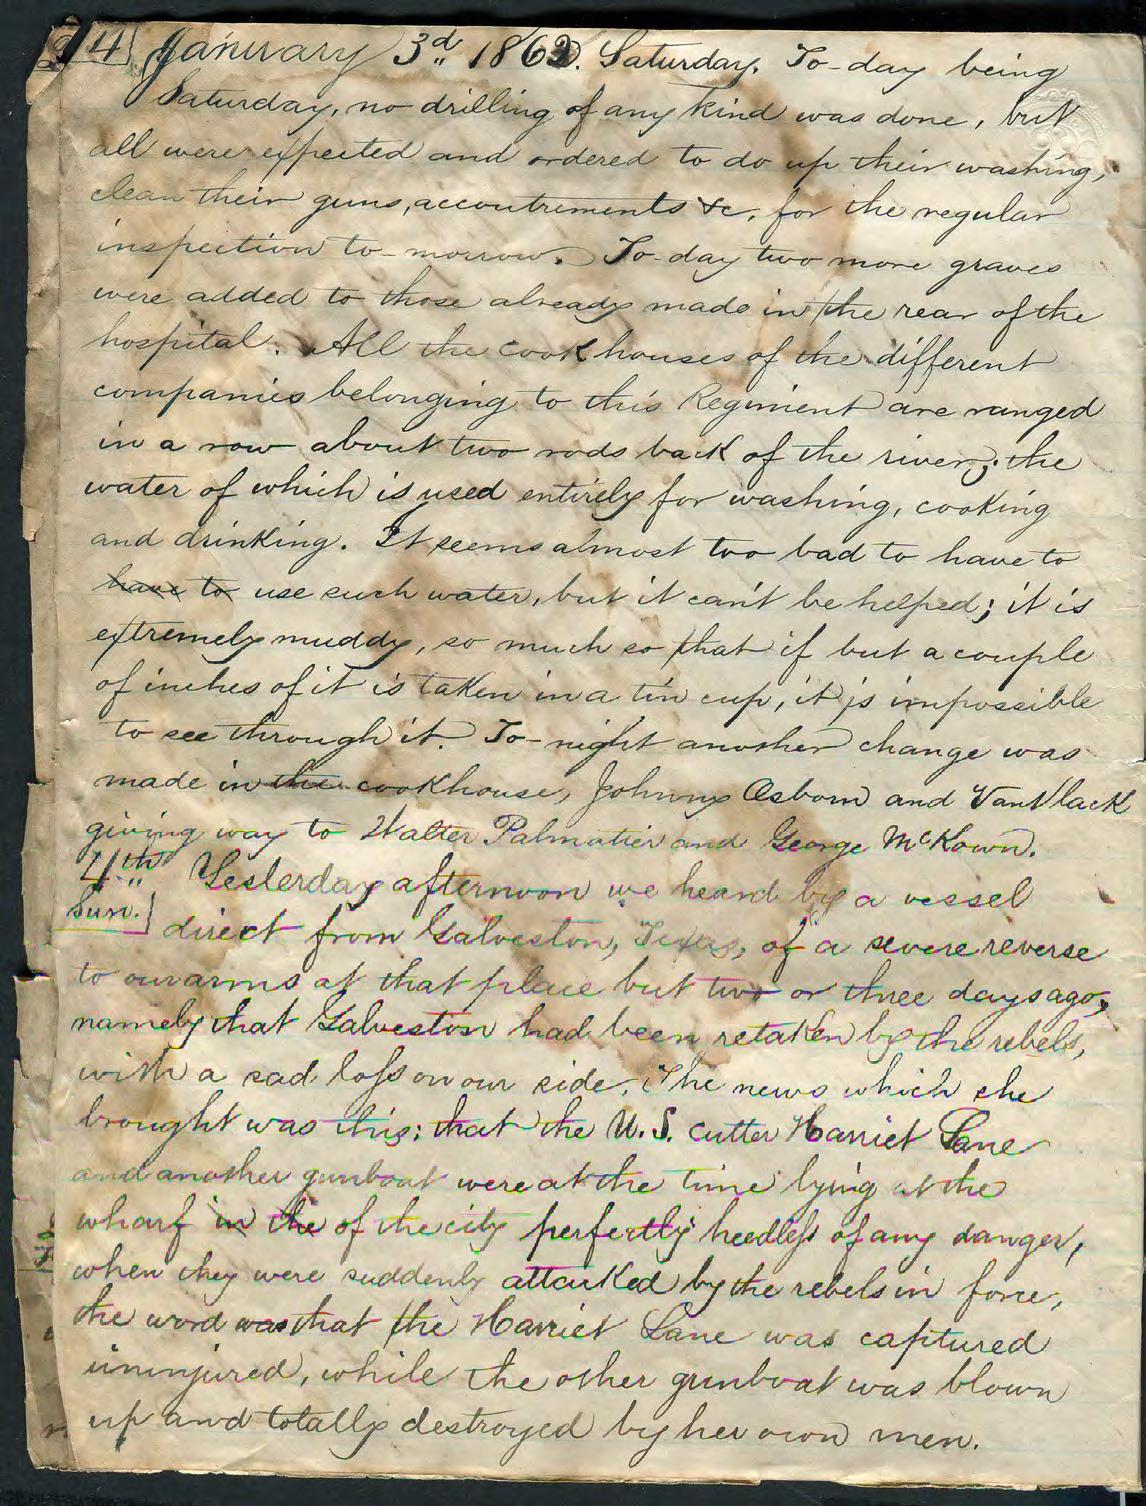 14] January 3d 1863. Saturday. To-day being
Saturday, no drilling of any kind was done, but
all were expected and ordered to do up their washing,
clean their guns, accoutrements &c, for the regular
inspection to-morrow. To-day two more graves
were added to those already made in the rear of the
hospital. All the cook houses of the different
companies belonging to this Regiment are ranged
in a row about two rods back of the river; the
water of which is used entirely for washing, cooking
and drinking. It seems almost too bad to have to
have to use such water, but it can't be helped; it is
extremely muddy, so much so that if but a couple
of inches of it is taken in a tin cup, it is impossible
to see through it. To-night another change was
made in the cookhouse, Johnny Osborn and VanVlack
giving way to Walter Palmatier and George McKown.
4th Yesterday afternoon we heard by a vessel
Sun.] direct from Galveston, Texas, of a severe reverse
to our arms at that place but two or three days ago;
namely that Galveston had been retaken by the rebels,
with a sad loss on our side. The news which she
brought was this: that the U.S. cutter Harriet Lane
and another gunboat were at the time lying at the
wharf in the of the city perfectly heedless of any danger,
when they were suddenly attacked by the rebels in force,
the word was that the Harriet Lane was captured
uninjured, while the other gunboat was blown
up and totally destroyed by her own men.